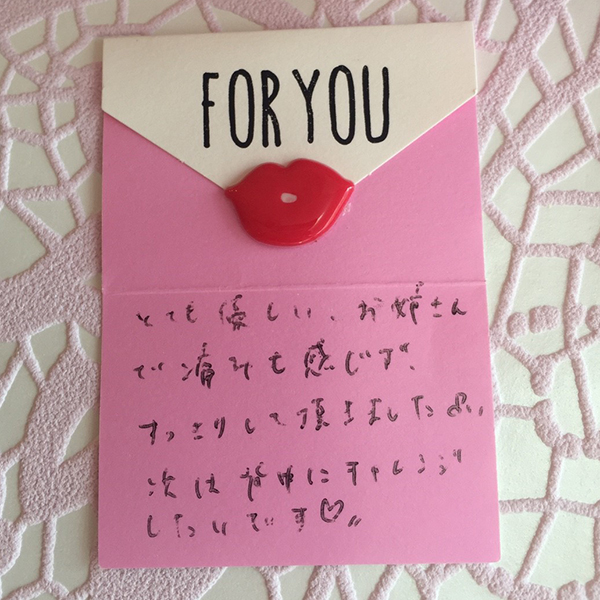 FOR YOU
とても優しい、お姉さん
で痛みも感じず、
すっきりして頂きましたぁ。
次は背中にチャレンジ
したいです♡〃